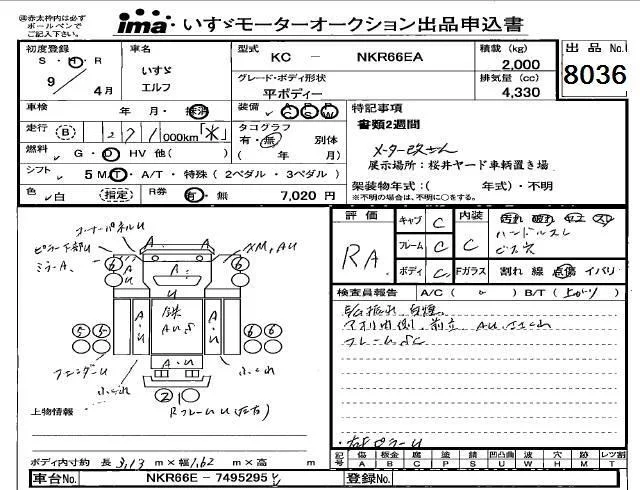 ※赤太枠内は必ず
ボールペンで
ご記入下さい。
ima いすゞモーターオークション出品申込書
初度登録 S・H・R 9年 4月
車名 いすゞ エルフ
型式 KC - NKR66EA
グレード・ボディ形状 平ボディー
積載 (kg) 2,000
排気量 (cc) 4,330
出品 No. 8036
車検 年 月・抹消
装備 AC PS PW
走行 (B) 271,000km「不」
タコグラフ 有・無 別体
( 年 月)
燃料 G・D HV 他( )
シフト 5 M/T・A/T・特殊 ( 2ペダル・3ペダル )
色 白 (指定)
R券 有・無 7,020 円
特記事項
書類2週間
メーター改ざん
展示場所:桜井ヤード車輌置き場
架装物年式:( 年式)・不明
※不明の場合は、不明に○をする。
コーナーパネルU
ピラー下部U
ミラーA
XM, AU
A A A
6 6
U
A・U
A・U
5 5 6 6
A・U
フェンダーU
2
RフレームU(左右)
上物情報
評価 RA
キャブ C
フレーム C
ボディ C
内装 C
汚れ 破れ
ハンドルスレ
ビス穴
Fガラス 割れ 線 点傷 イバリ
検査員報告 A/C ( ) B/T ( 上がり )
アオリ内側、前立 AU
フレームSC
右ピラーU
ボディ内寸約 長 3,13 m×幅 1,62 m×高 m
車台No. NKR66E - 7495295
記号 傷 板金 腐 塗 錆 凹凸曲 波 穴 跡 レツ割
A B C P S U W H M T
登録No.